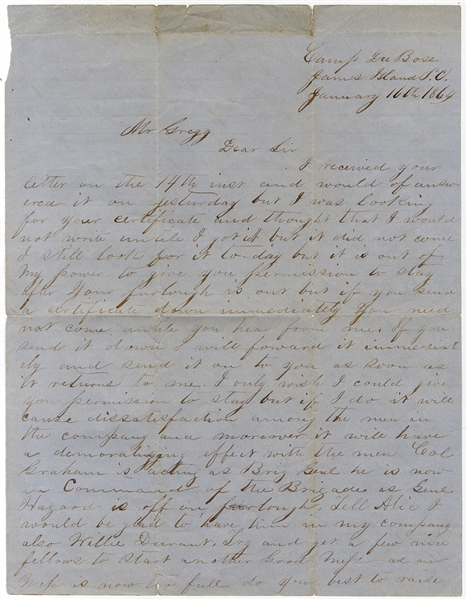 Camp Du Bose
James Island S.C.
January 16th 1864
Mr Gregg
Dear Sir
I received your
letter on the 14th inst and would of answ
ered it on yesturday but I was looking
for your certificate and thought that I would
not write untill I got it but it did not come
I still look for it to-day but it is out of
my power to give you permission to stay
after your furlough is out but if you send
a certificate down immediately you need
not come untill you hear from me. If you
send it down I will foward it immediat
ely and send it on to you as soon as
it returns to me. I only wish I could give
you permission to stay but if I do it will
cause dissatisfaction among the men in
the company and moreover it will have
a demoralizing effect with the men Col
Graham is acting as Brig Genl he is now
in Command of the Brigade as Genl
Hagood is off on furlough. Tell Alic I
would be glad to have him in my company
also Willie Durant. Try and get a few nice
fellows to start another Good Mess as our
Mess is now to full do your best to raise